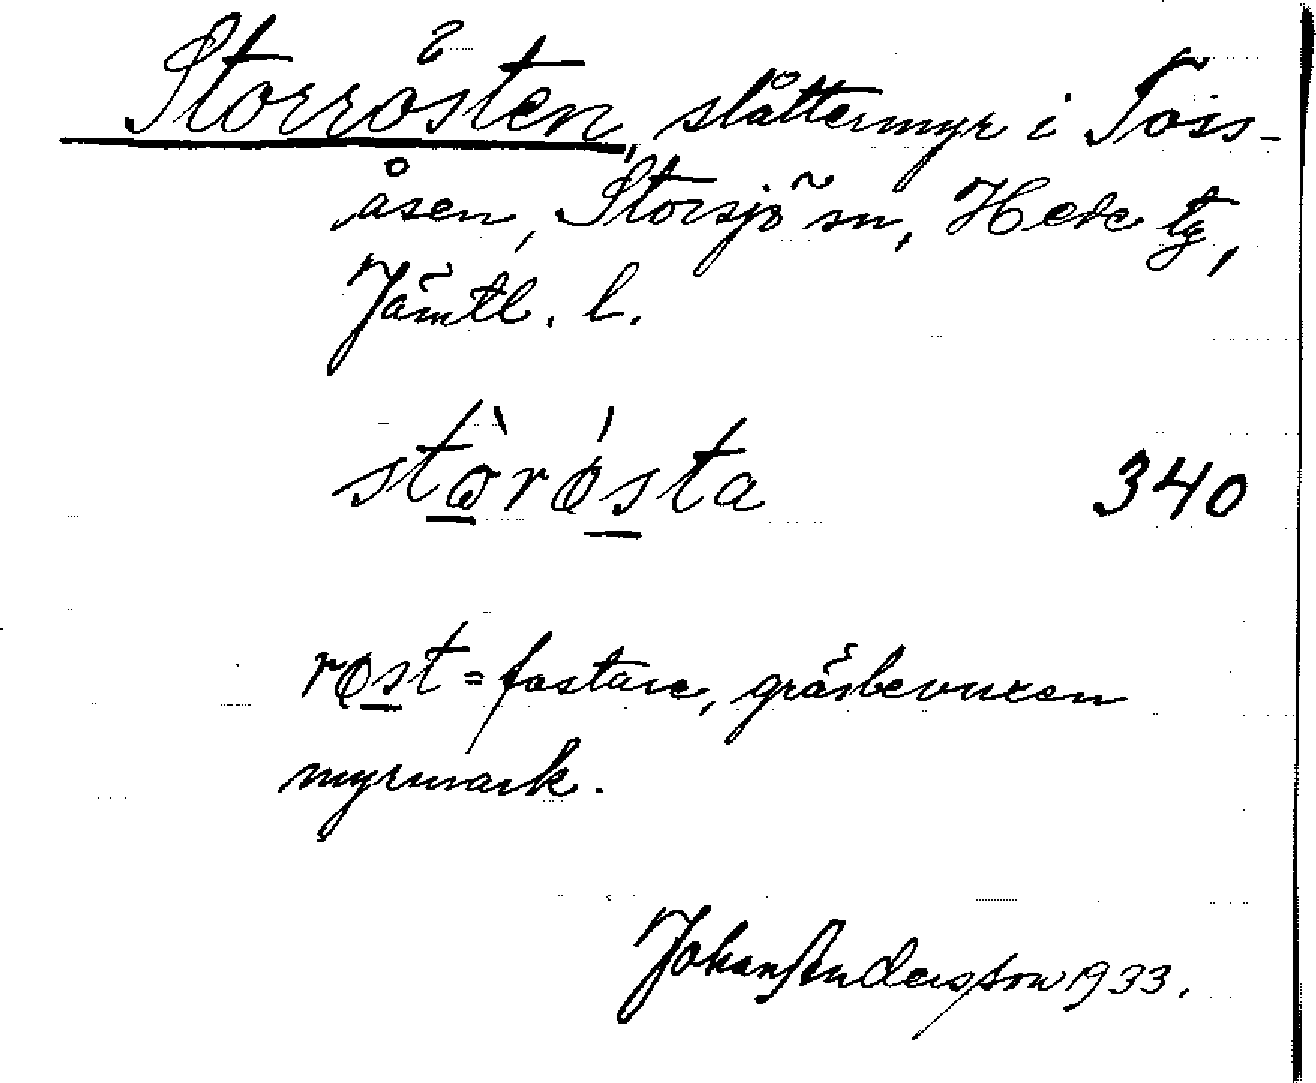 Storrösten, slåttermyr i Torss-
åsen, Storsjö sn, Hede tg,
Jämtl. l.
stòrǿsta 340
røst = fastare, gräsbevuxen
myrmark.
Johan Andersson 1933.